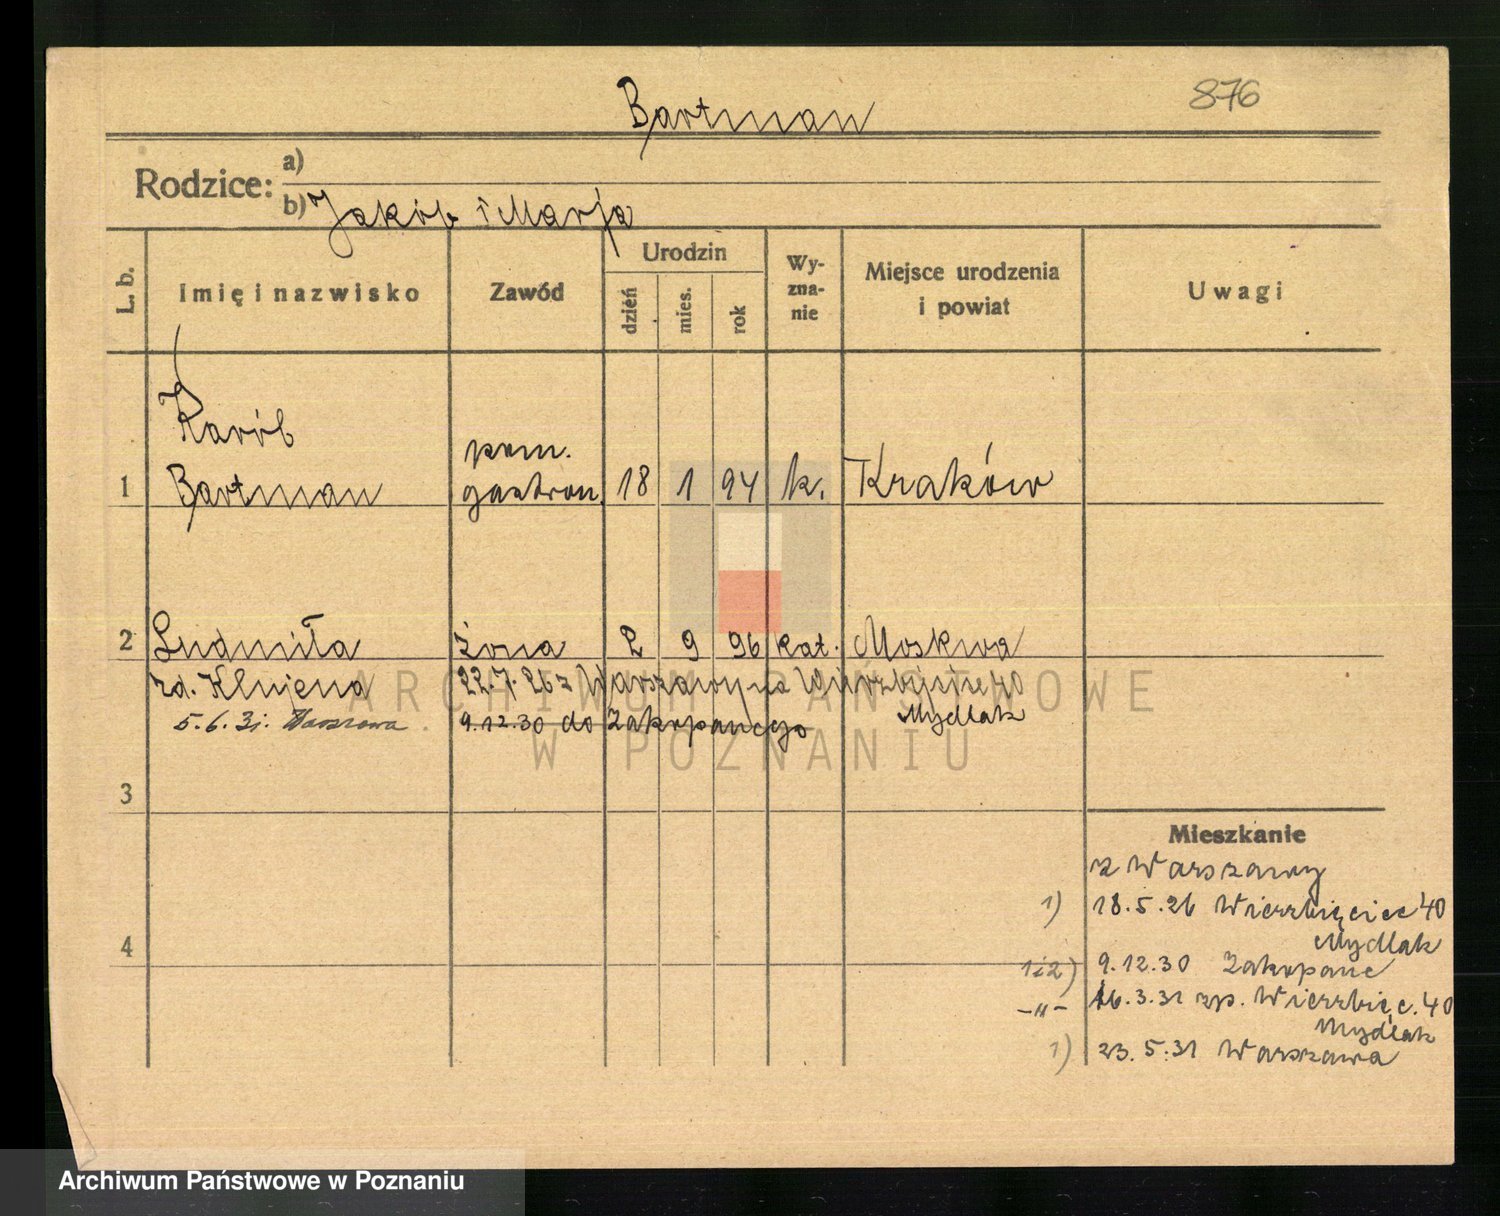 Bartman
876
Rodzice: a)
b) Jakób i Marja
L. b.
Imię i nazwisko
Zawód
Urodzin
dzień
mies.
rok
Wy-
zna-
nie
Miejsce urodzenia
i powiat
Uwagi
Karób
pom.
1 Bartman gastron. 18 1 94 k. Kraków
2 Ludmiła żona 2 9 96 kat. Moskwa
zd. Klnjena 22.7.26 z Warszawy na Wierzbięcice 40
Mydlak
5.6.31. Warszawa 9.12.30 do Zakopanego
3
Mieszkanie
z Warszawy
1) 18.5.26 Wierzbięcice 40
Mydlak
4
1i2) 9.12.30 Zakopane
-"- 16.3.31 zp. Wierzbięc. 40
Mydlak
1) 23.5.31 Warszawa
ARCHIWUM PAŃSTWOWE
W POZNANIU
Archiwum Państwowe w Poznaniu